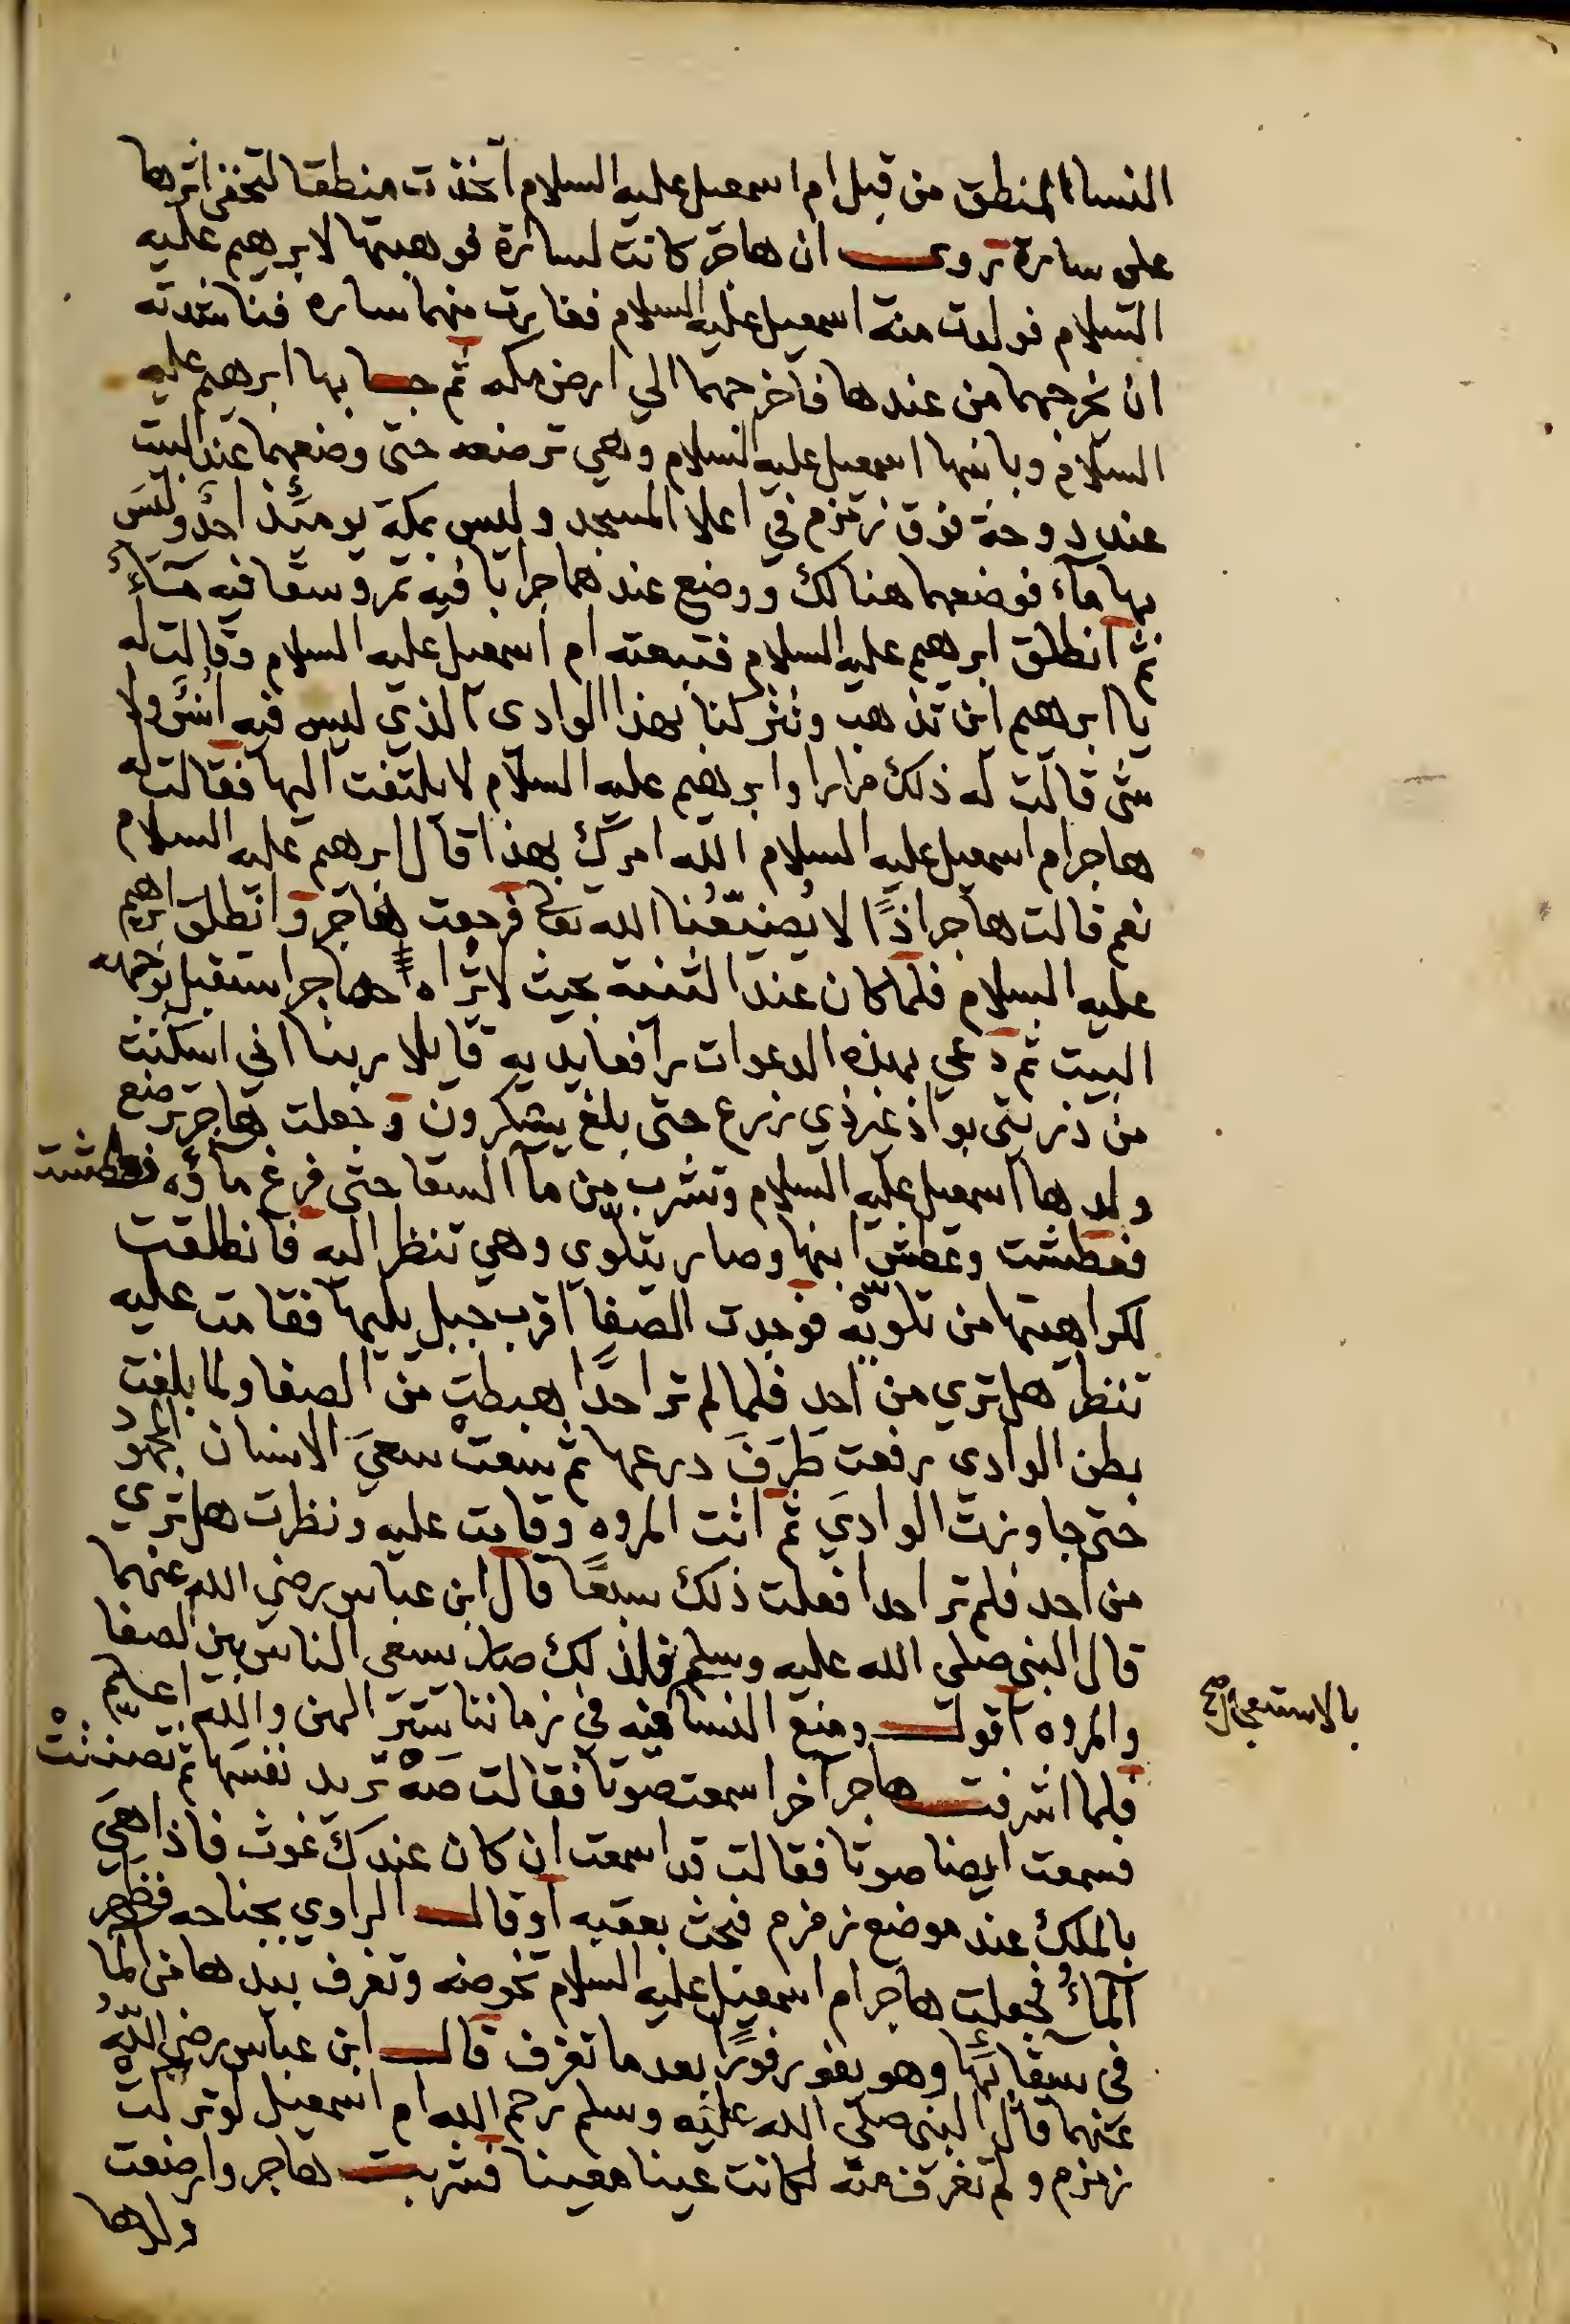 النساء المنطق من قبل ام اسمعيل عليه السلام اتخذت منطقا لتخفى اثرها
على سارة تروى ان هاجر كانت لسارة فوهبتها لابرهيم عليه
السلام فولدت منه اسمعيل عليه السلام فغارت منهما ساره فناشدته
ان يخرجهما من عندها فاخرجهما الي ارض مكه ثم جا بها ابرهيم عليه
السلام وبابنها اسمعيل عليه السلام وهي ترضعه حتى وضعهما عند البيت
عند دوحة فوق زمزم في اعلا المسجد وليس بمكة يومئذ احد وليس
بها مآء فوضعهما هنالك ووضع عندهما جرابا فيه تمر وسقا فيه مآء
ثم انطلق ابرهيم عليه السلام فتبعته ام اسمعيل عليه السلام وقالت له
يا ابرهيم اين تذهب وتتركنا بهذا الوادى الذي ليس فيه انس ولا
شى قالت له ذلك مرارا وابرهيم عليه السلام لا يلتفت اليها فقالت له
هاجر ام اسمعيل عليه السلام الله امرك بهذا قال ابرهيم عليه السلام
نعم قالت هاجر اذًا لا يُضيّعُنا الله تعالى فرجعت هاجر وانطلق ابرهيم
عليه السلام فلما كان عند الثنية بحيث لا تراه هاجر استقبل بوجهه
البيت ثم دعي بهذه الدعوات رافعا يديه قايلا ربنا انى اسكنت
من ذريتى بواد غير ذي زرع حتى بلغ يشكرون وجعلت هاجر ترضع
ولدها اسمعيل عليه السلام وتشرب من مآ السقا حتى فرغ ماؤه فعطشت
فعطشت وعطش ابنها وصار يتلوّى وهي تنظر اليه فانطلقت
لكراهيتها من تلويّه فوجدت الصفا اقرب جبل يليها فقامت عليه
تنظر هل تري من احد فلما لم تر احدًا هبطت من الصفا ولما بلغت
بطن الوادي رفعت طرَفَ درعها ثم سعتْ سعيَ الانسان المجهود
حتى جاوزت الوادي ثم اتت المروه وقامت عليه ونظرت هل تري
من احد فلم تر احدا فعلت ذلك سبعًا قال ابن عباس رضي الله عنهما
قال النبي صلى الله عليه وسلم فلذلك صار سعى الناس بين الصفا
والمروه اقول ومنع النسا منه في زماننا لستر الهن والله اعلم
بالاستعجال صح
فلما اشرفت هاجر آخرا سمعت صوتا فقالت صَهْ تريد نفسها ثم تصنتتْ
فسمعت ايضا صوتا فقالت قد اسمعت ان كان عندك غوث فاذا هيَ
بالملك عند موضع زمزم فبحث بعقبه او قال الراوي بجناحه فظهر
المآءُ فجعلت هاجر ام اسمعيل عليه السلام تحوضه وتغرف بيدها من المآ
في سِقائها وهو يفور فورًا بعد ما تغرف قال ابن عباس رضي اللّهُ
عنهما قال النبي صلى الله عليه وسلم رحم الله ام اسمعيل لو تركت
زمزم ولم تغرف منه لكانت عينا معينا فشربت هاجر وارضعت
ولدها